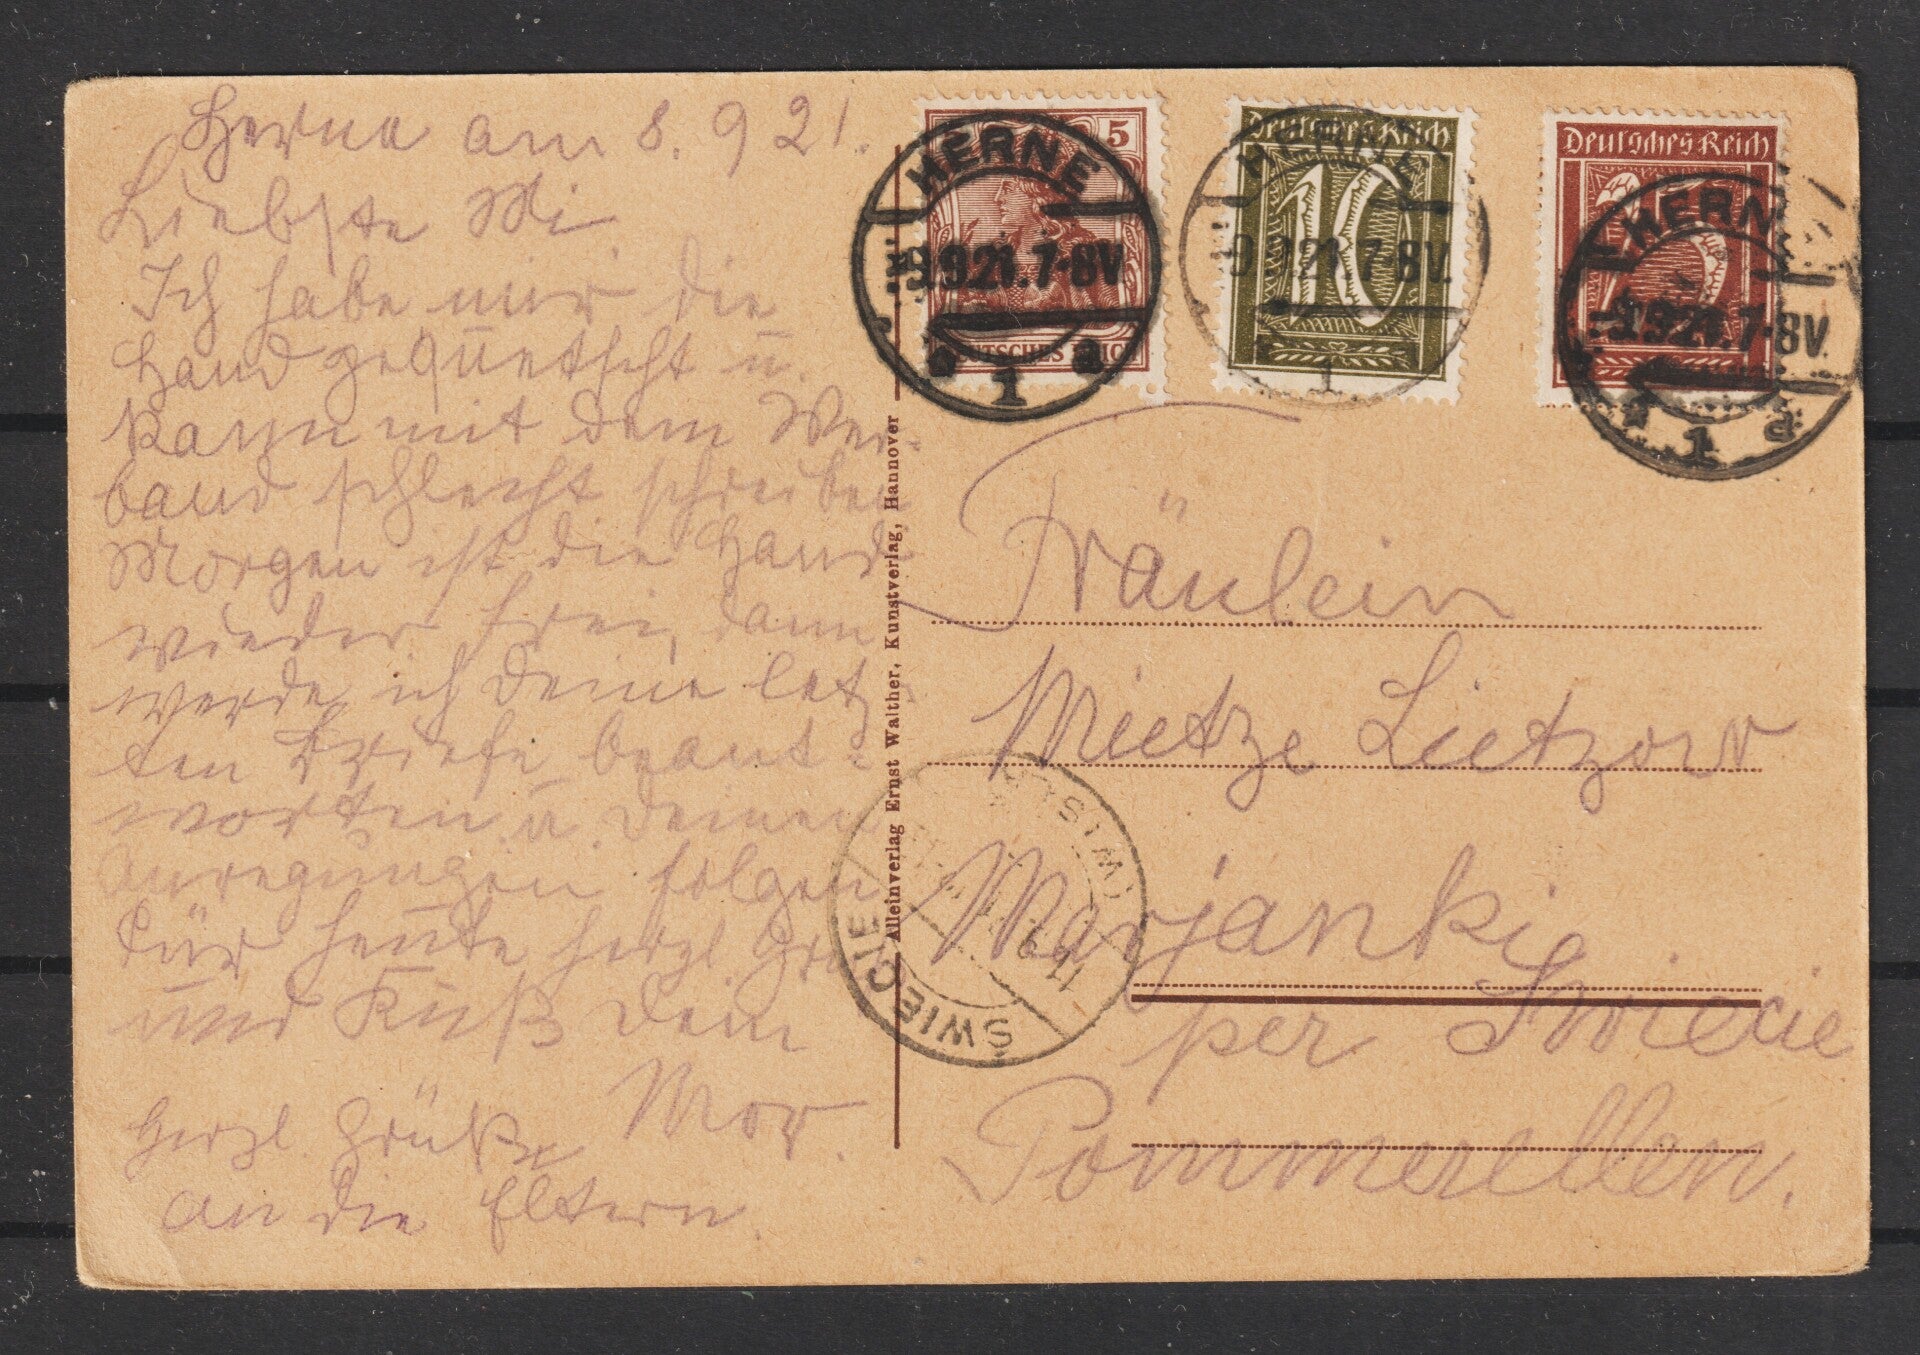 Herne am 8. 9 21.
Liebste Mi
Ich habe mir die
Hand gequetscht u.
kann mit dem Ver-
band schlecht schreiben
Morgen ist die Hand
wieder frei, dann
werde ich Deine letz
ten Briefe beant-
worten u. Deinen
Anregungen folgen
Für heute herzl. Gru
und Kuß Dein
Herzl. Grüße
an die Eltern.
5
DEUTSCHES REICH
HERNE
9.9.21.7-8V.
1
a
Deutsches Reich
10
HERNE
9.9.21.7-8V.
1
Deutsches Reich
25
HERNE
9.9.21.7-8V.
1
Alleinverlag Ernst Walther, Kunstverlag, Hannover
Fräulein
Mietze Lietzow
Marjanki
per Swiecie
Pommerellen.
ŚWIECIE